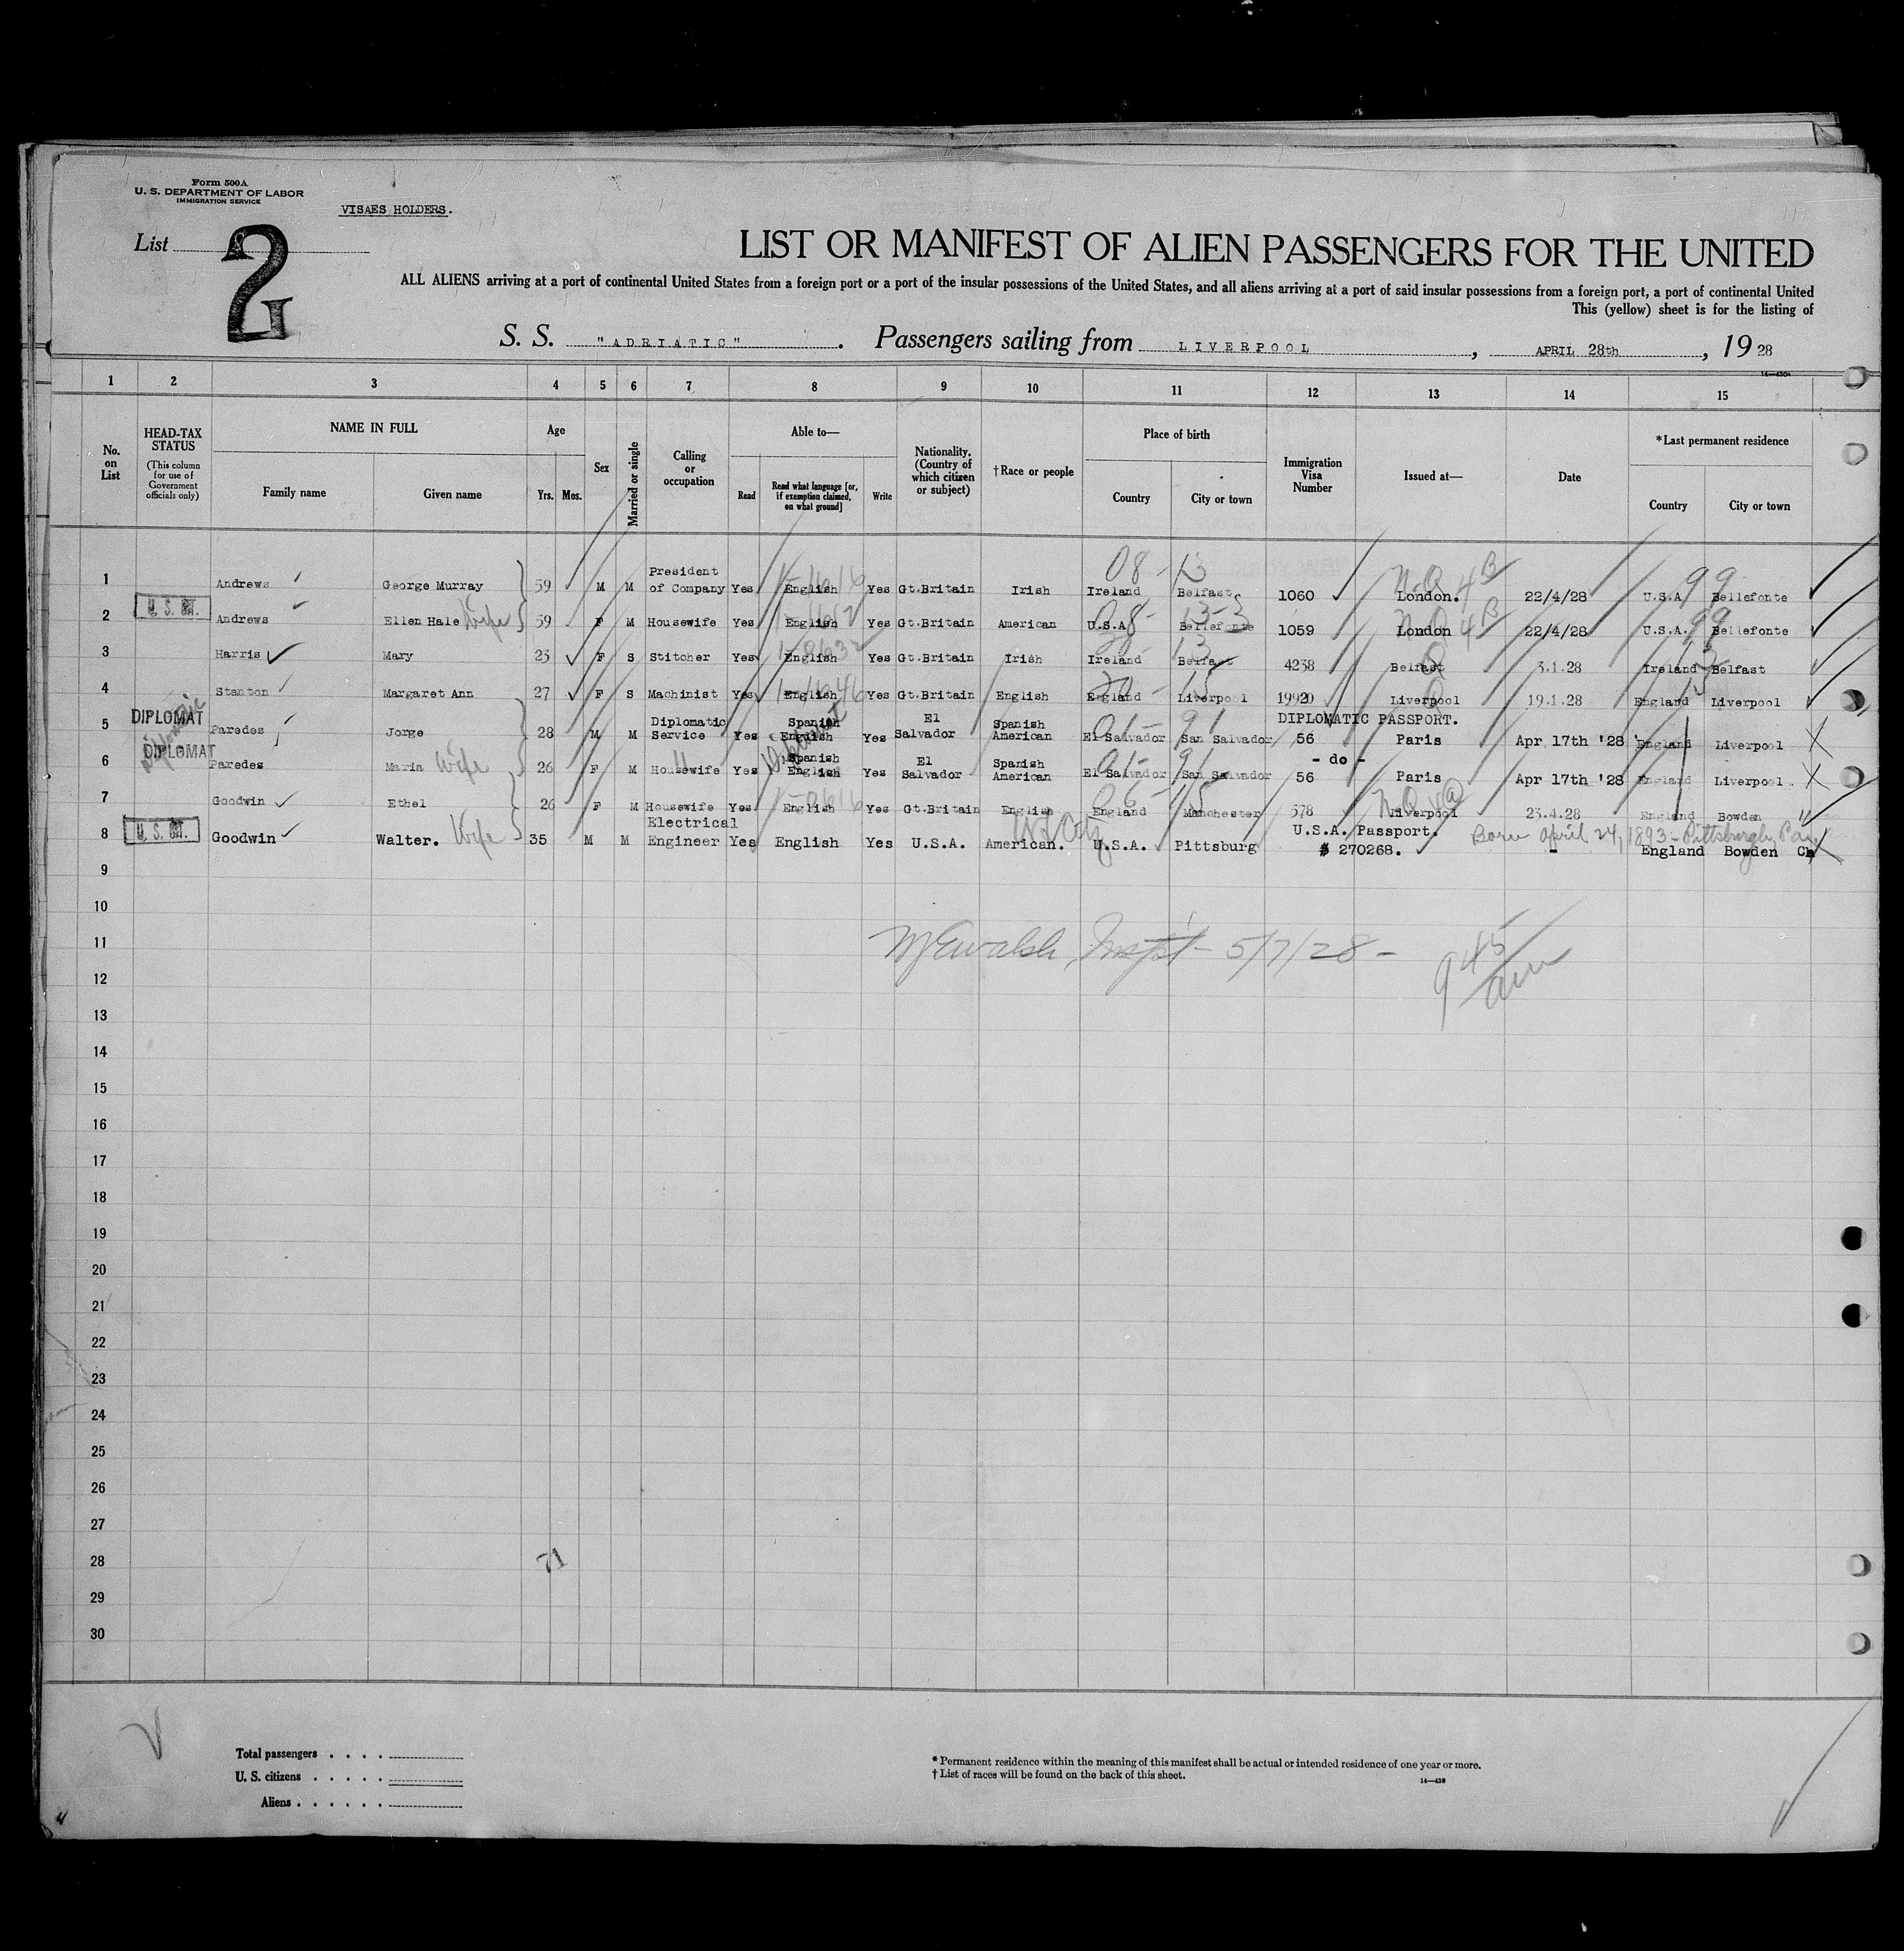 Form 500A
U. S. DEPARTMENT OF LABOR
IMMIGRATION SERVICE
VISAES HOLDERS.
List 2
LIST OR MANIFEST OF ALIEN PASSENGERS FOR THE UNITED
ALL ALIENS arriving at a port of continental United States from a foreign port or a port of the insular possessions of the United States, and all aliens arriving at a port of said insular possessions from a foreign port, a port of continental United
This (yellow) sheet is for the listing of
S. S. "ADRIATIC". Passengers sailing from LIVERPOOL, APRIL 28th, 1928
14—430
1 2 3 4 5 6 7 8 9 10 11 12 13 14 15
No. on List
HEAD-TAX STATUS
(This column for use of Government officials only)
NAME IN FULL
Family name Given name
Age
Yrs. Mos.
Sex
Married or single
Calling or occupation
Able to—
Read
Read what language [or, if exemption claimed, on what ground]
Write
Nationality. (Country of which citizen or subject)
†Race or people
Place of birth
Country City or town
Immigration Visa Number
Issued at—
Date
*Last permanent residence
Country City or town
08-13 N.Q 4B 99
1 Andrews George Murray 59 M M President of Company Yes English Yes Gt.Britain Irish Ireland Belfast 1060 London. 22/4/28 U.S.A Bellefonte
U. S. Ct.
2 Andrews Ellen Hale Wife 59 F M Housewife Yes English Yes Gt.Britain American U.S.A. Bellefonte 1059 London 22/4/28 U.S.A. Bellefonte
3 Harris Mary 23 F S Stitcher Yes English Yes Gt.Britain Irish Ireland Belfast 4238 Belfast 3.1.28 Ireland Belfast
4 Stanton Margaret Ann 27 F S Machinist Yes English Yes Gt.Britain English England Liverpool 19920 Liverpool 19.1.28 England Liverpool
DIPLOMAT
Diplomatic
DIPLOMATIC PASSPORT.
5 Paredes Jorge 28 M M Diplomatic Service Yes Spanish English Yes El Salvador Spanish American El Salvador San Salvador 56 Paris Apr 17th '28 England Liverpool
DIPLOMAT
- do -
6 Paredes Maria Wife 26 F M Housewife Yes Spanish English Yes El Salvador Spanish American El Salvador San Salvador 56 Paris Apr 17th '28 England Liverpool
7 Goodwin Ethel 26 F M Housewife Yes English Yes Gt.Britain English England Manchester 578 Liverpool 23.4.28 England Bowden
U. S. Ct.
U.S.A. Passport. Born April 24, 1893 - Pittsburgh, Pa.
8 Goodwin Walter. Wife 35 M M Electrical Engineer Yes English Yes U.S.A. American. U.S.A. Pittsburg # 270268. - England Bowden Ch
9
10
11
12
13
14
15
16
17
18
19
20
21
22
23
24
25
26
27
28
29
30
Inspt - 5/7/28 -
9 45 am
71
Total passengers
U. S. citizens
Aliens
* Permanent residence within the meaning of this manifest shall be actual or intended residence of one year or more.
† List of races will be found on the back of this sheet.